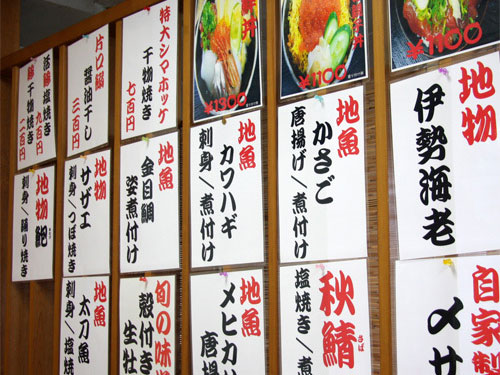 丼
¥1300
丼
¥1100
¥1100
特大シマホッケ
干物焼き
七百円
片口鰯
醤油干し
三百円
活鯵塩焼き
九百円
鯵干物焼き
二百円
地物
伊勢海老
地魚
かさご
唐揚げ/煮付け
地魚
カワハギ
刺身/煮付け
地魚
金目鯛
姿煮付け
地物
サザエ
刺身/つぼ焼き
地物鮑
刺身/踊り焼き
自家製
〆サ
秋鯖
さば
塩焼き/煮
地魚
メヒカリ
唐揚
旬の味
殻付き
生牡
地魚
太刀魚
刺身/塩焼